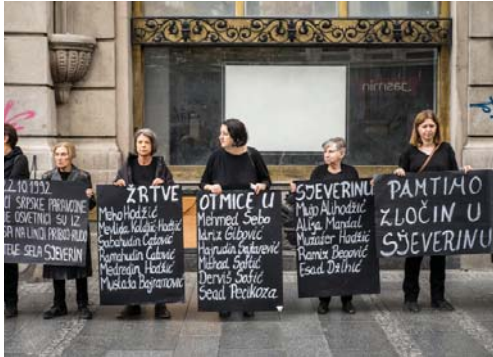 2.10 1992
CI SRPSKE PARAVOJNE
E OSVETNICI SU IZ
SA NA LINIJI PRIBOJ-RUDO
TELJE SELA SJEVERIN
ŽRTVE
Meho Hodžić
Mevlida Koldžić Hodžić
Sabahudin Ćatović
Ramahudin Ćatović
Medredin Hodžić
Mustafa Bajramović
OTMICE U
Mehmed Šebo
Idriz Gibović
Hajrudin Sajtarević
Mithad Softić
Derviš Softić
Sead Pecikoza
SJEVERINU
Mujo Alihodžić
Alija Mandal
Muzafer Hadžić
Ramiz Begović
Esad Džihić
PAMTIMO
ZLOČIN U
SJEVERINU